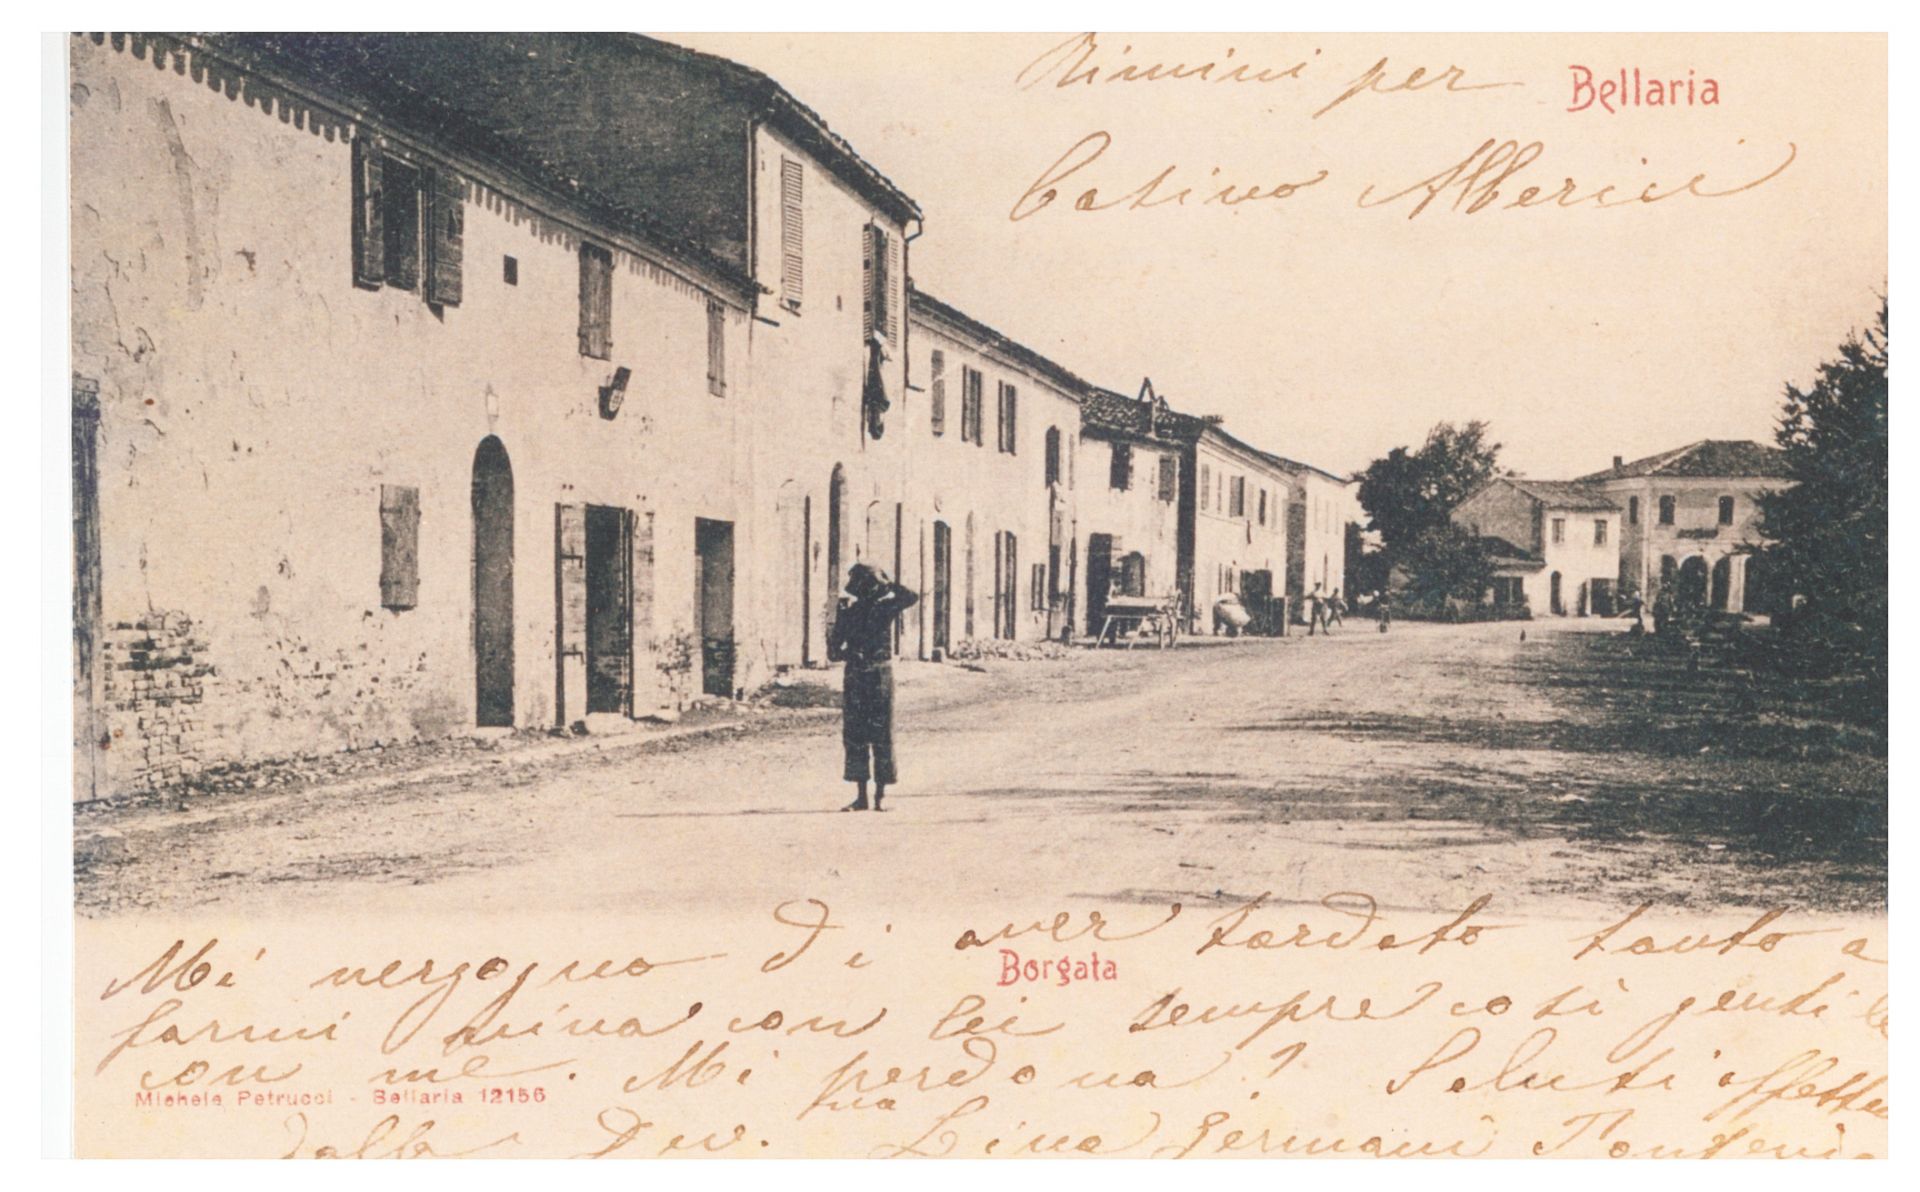 Rimini per Bellaria
Casino Alberici
Mi vergogno di aver tardato tanto a
Borgata
farmi viva con lei sempre così gentile
con me. Mi perdona? Saluti affettu
Michele Petrucci - Bellaria 12156
dalla Dev. sua Lina Germani